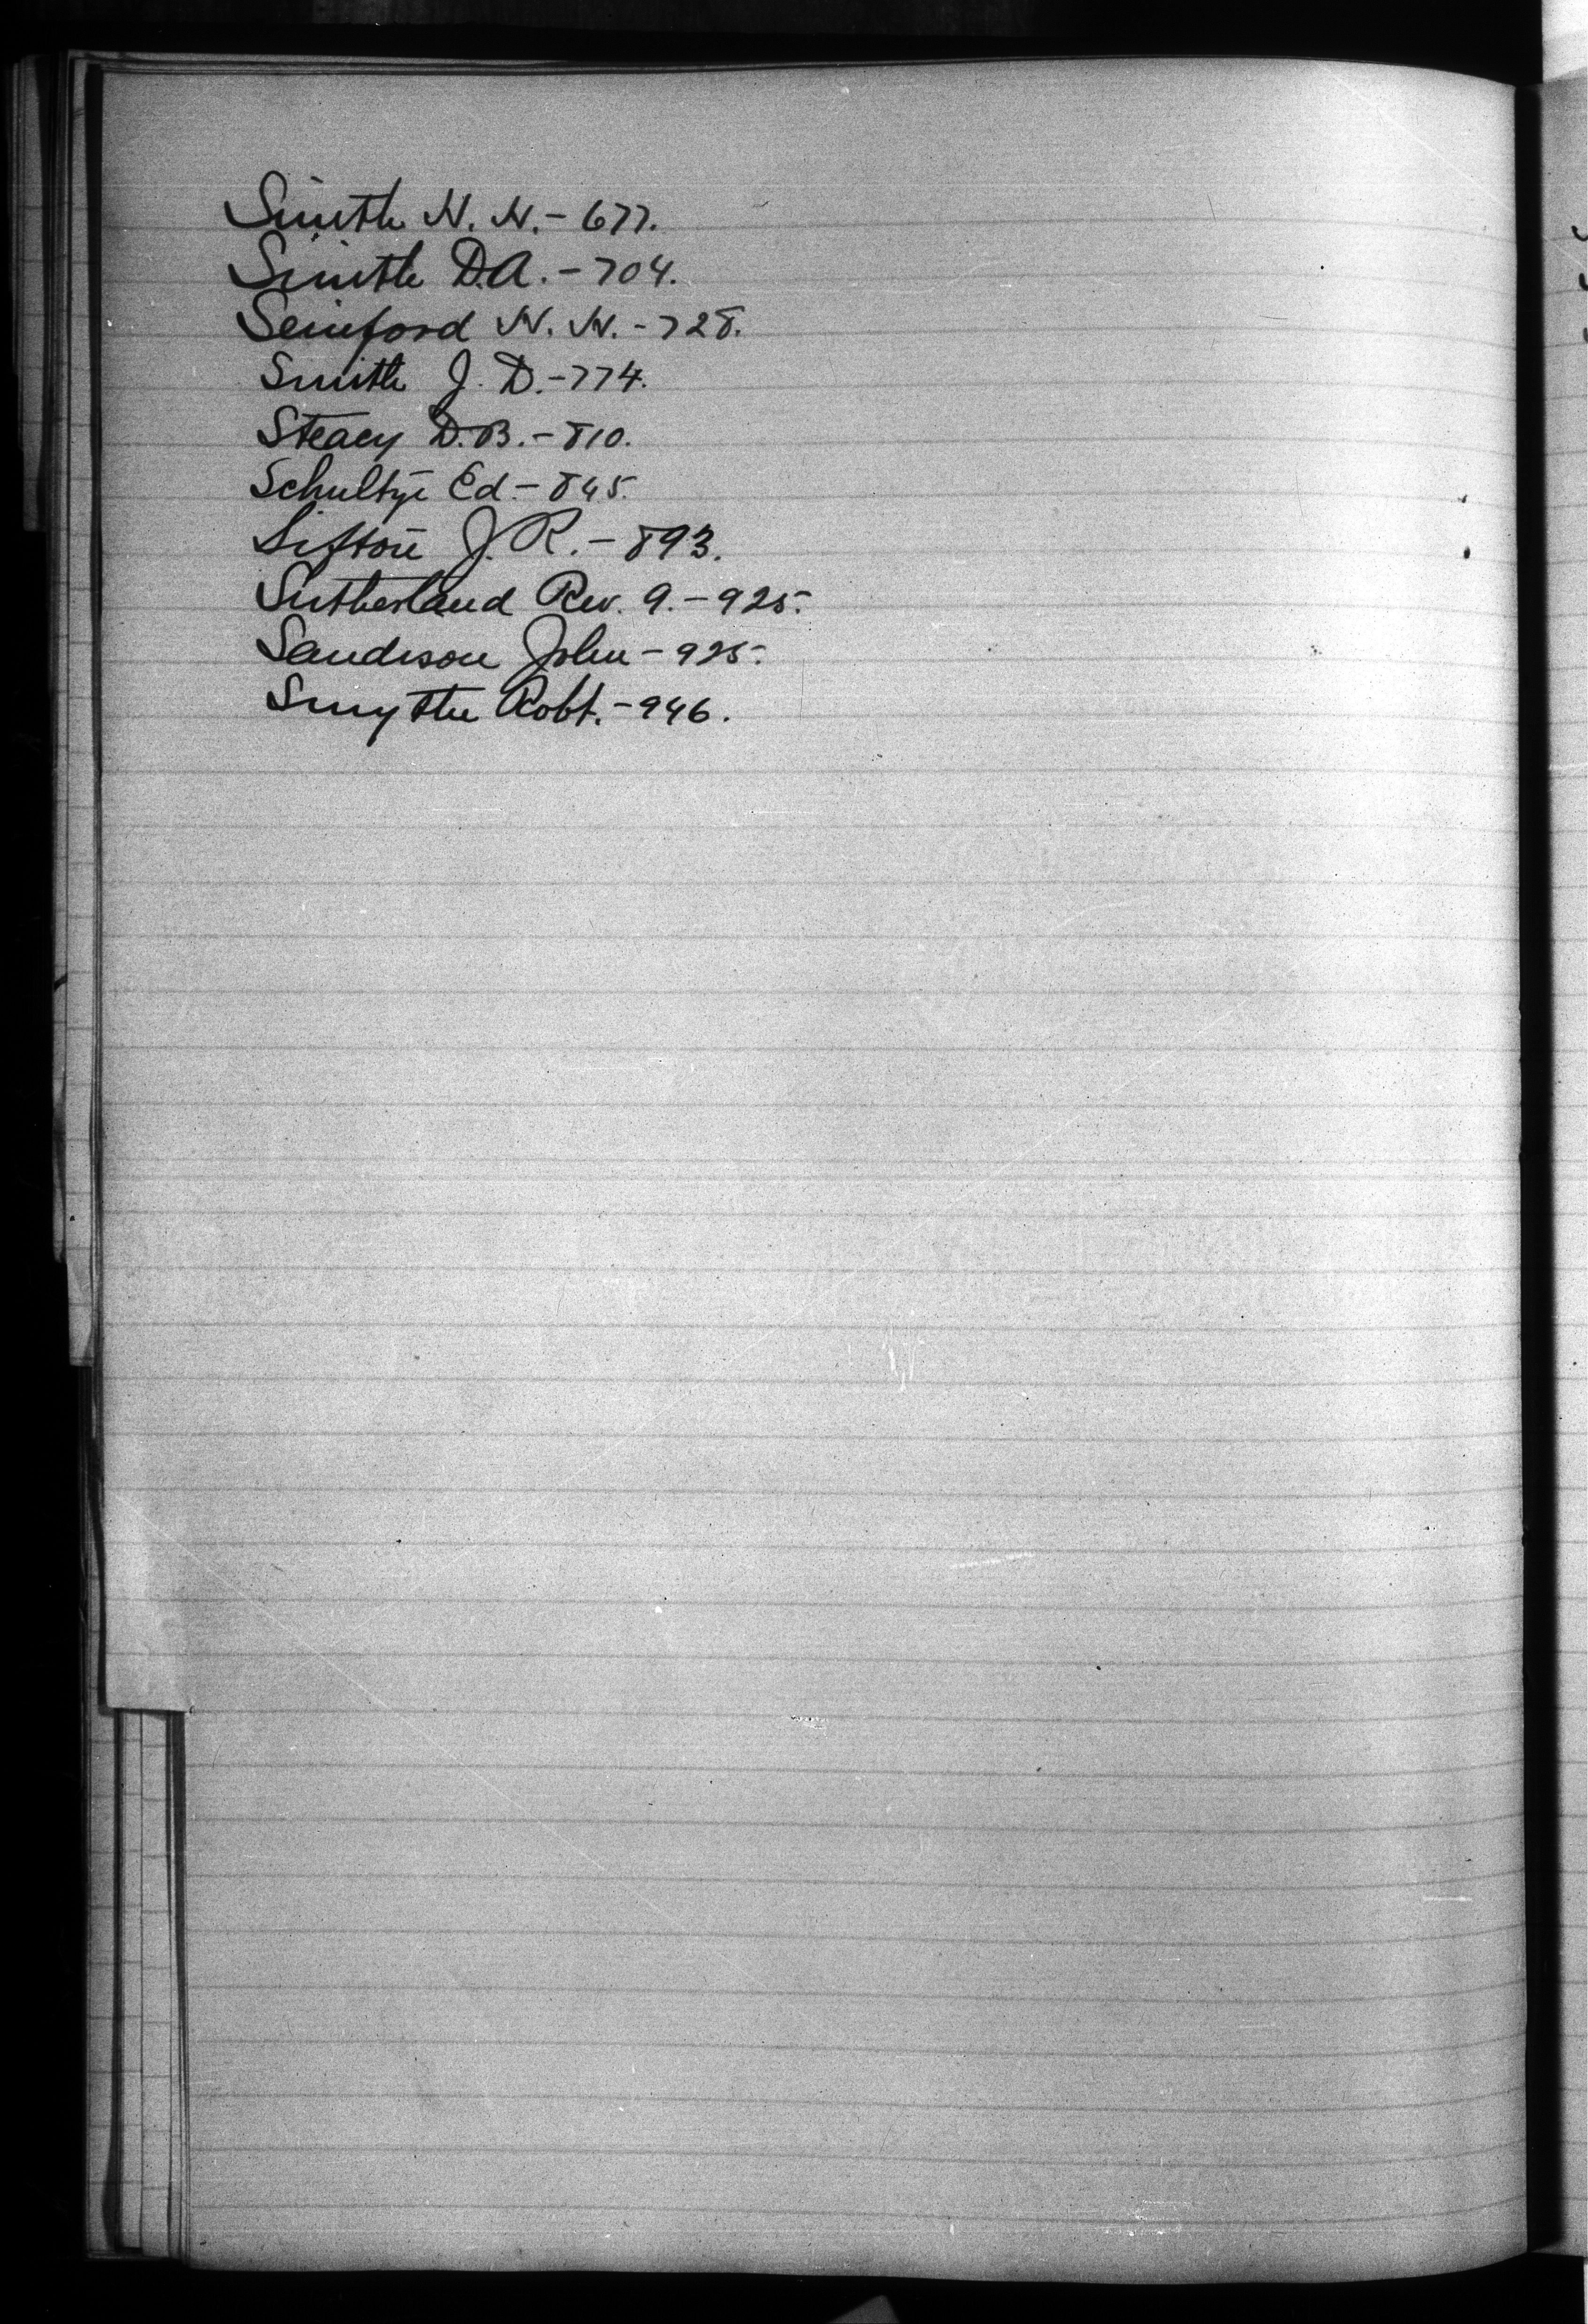 Smith H. H. - 677.
Smith D.A. - 704.
Seniford H. H. - 728.
Smith J. D. - 774.
Steacy D. B. - 810.
Schultze Ed - 845.
Sifton J. R. - 893.
Sutherland Rev. A. - 925.
Sandison John - 925.
Smythe Robt. - 946.